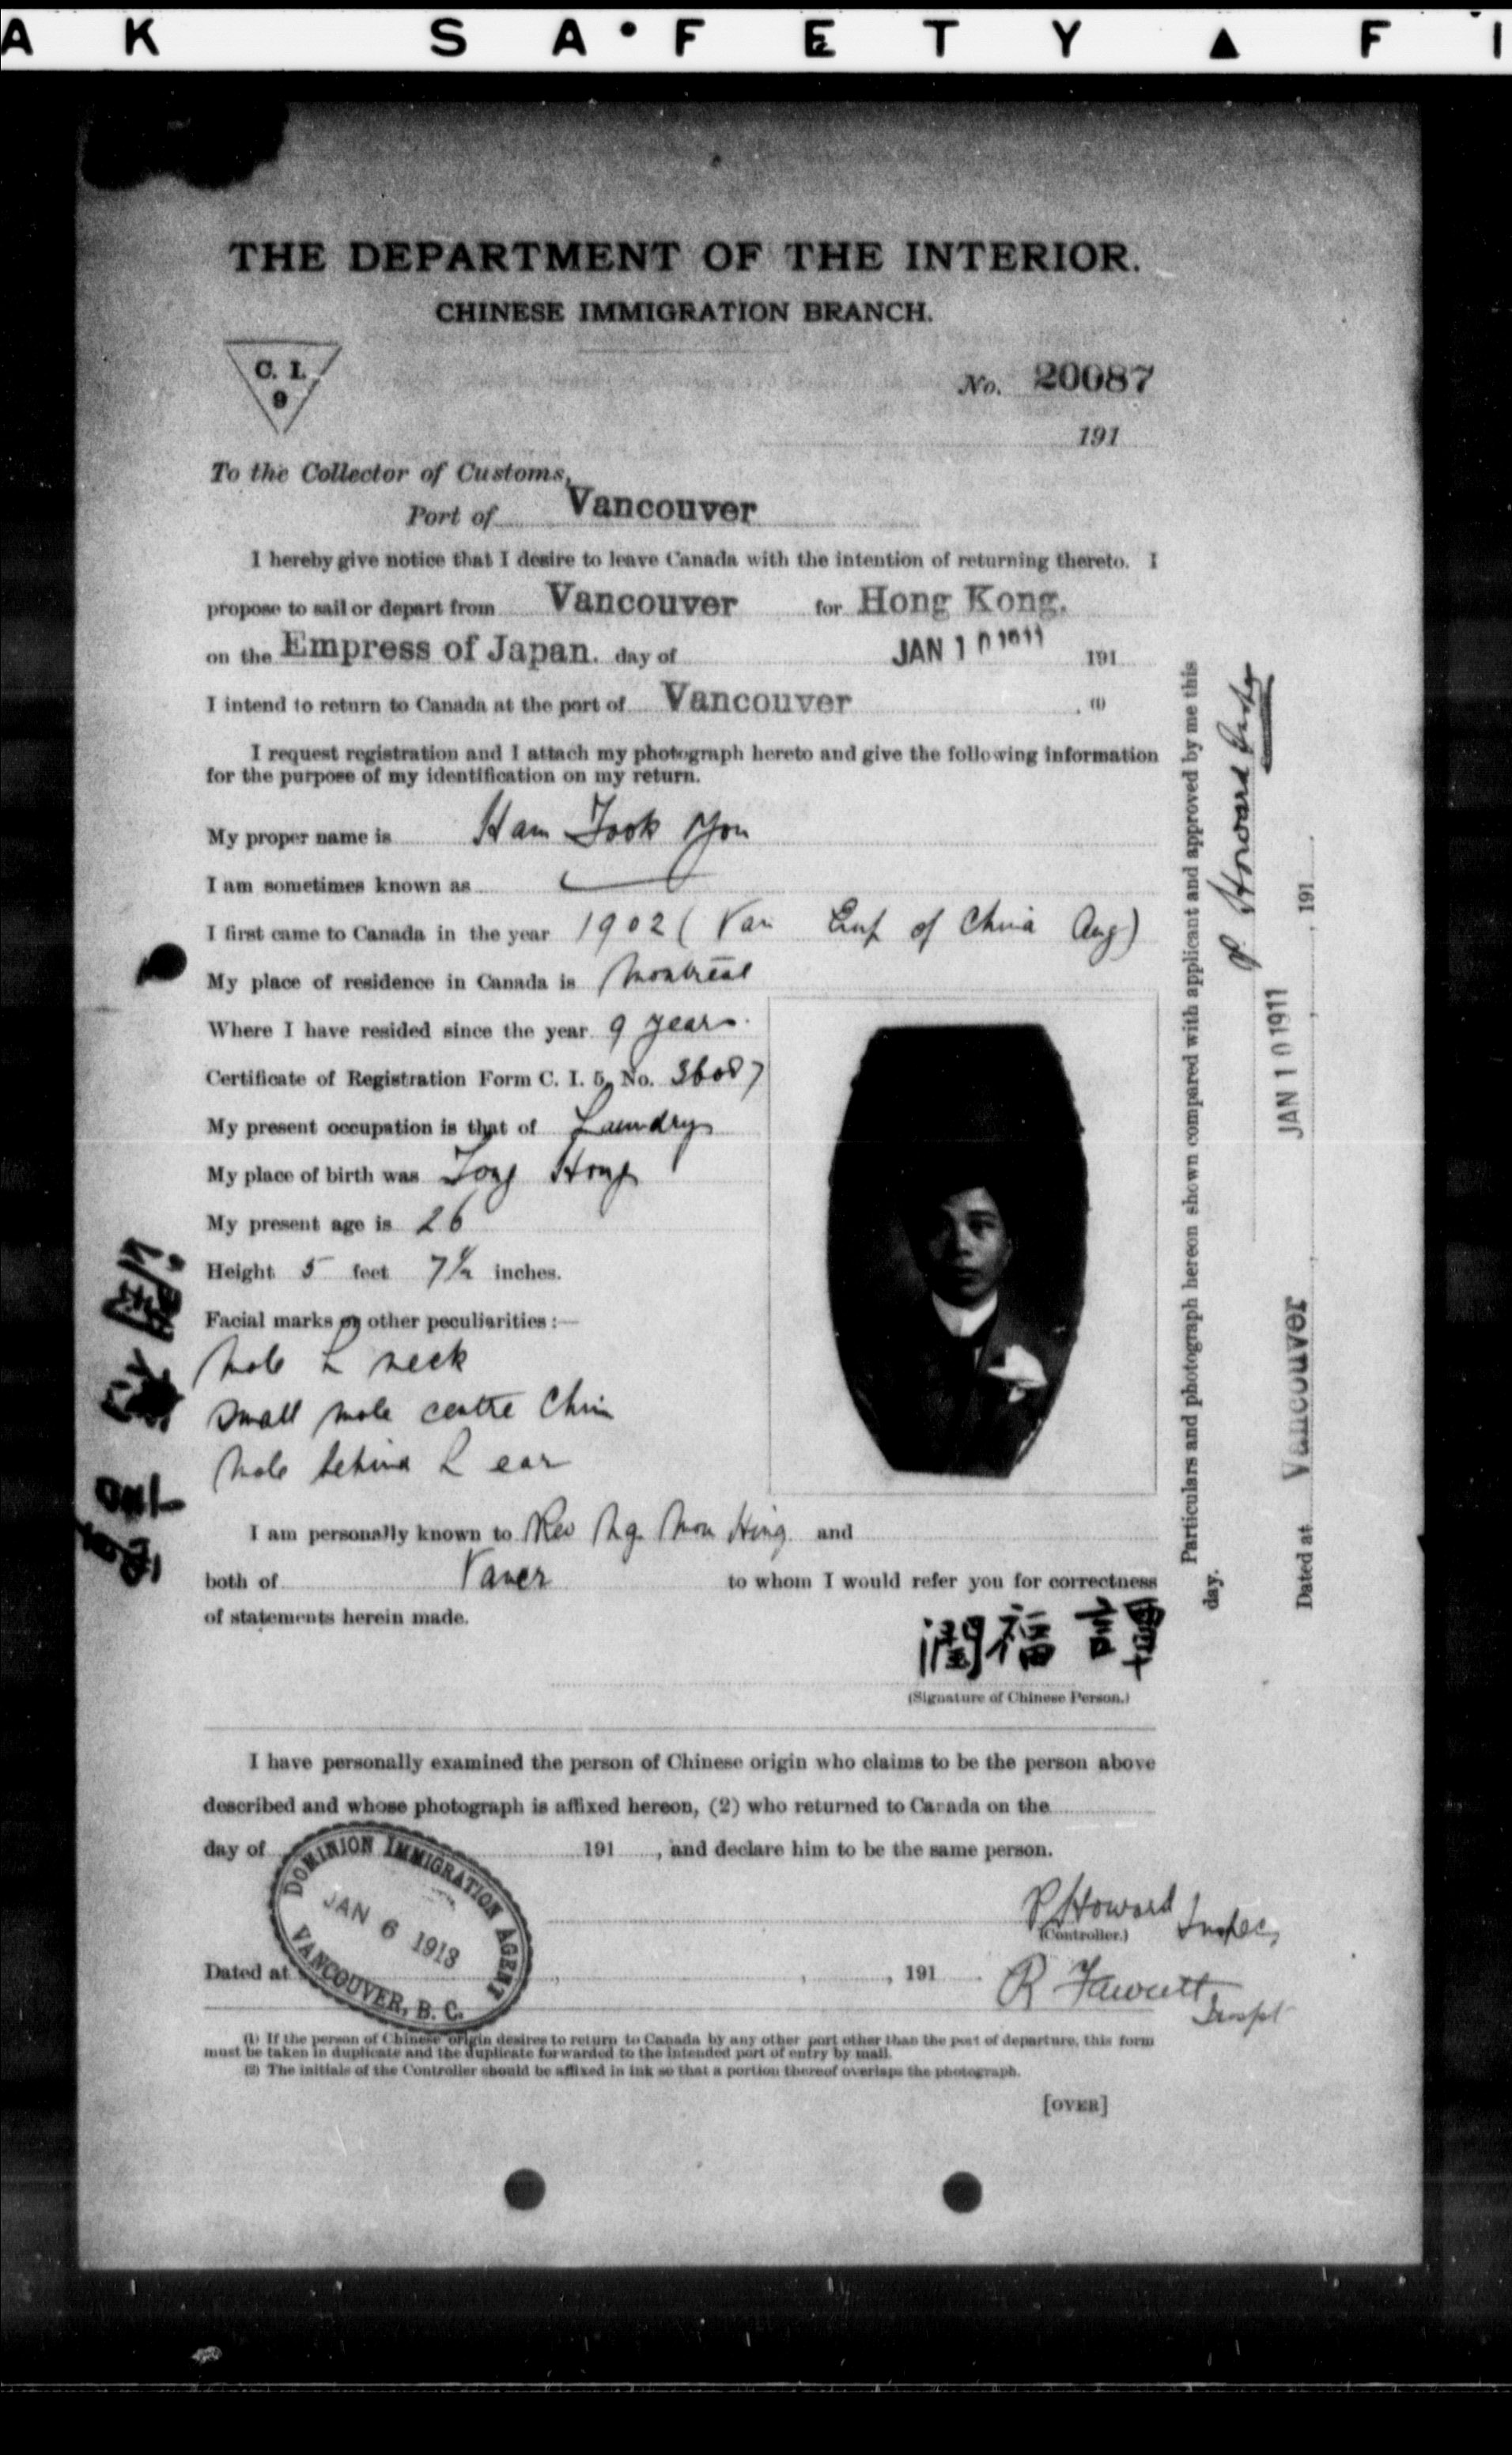 A K S A • F E T Y ▲ F I
THE DEPARTMENT OF THE INTERIOR.
CHINESE IMMIGRATION BRANCH.
C. I.
9
No. 20087
191
To the Collector of Customs,
Port of Vancouver
I hereby give notice that I desire to leave Canada with the intention of returning thereto. I
propose to sail or depart from Vancouver for Hong Kong.
on the Empress of Japan. day of JAN 10 1911 191
I intend to return to Canada at the port of Vancouver . (1)
I request registration and I attach my photograph hereto and give the following information
for the purpose of my identification on my return.
My proper name is Ham Fook Yon
I am sometimes known as
I first came to Canada in the year 1902 ( Van Emp of China Aug)
My place of residence in Canada is Montreal
Where I have resided since the year 9 years.
Certificate of Registration Form C. I. 5, No. 36087
My present occupation is that of Laundry
My place of birth was Hong
My present age is 26
Height 5 feet 7½ inches.
Facial marks or other peculiarities :—
Mole L neck
Small mole centre Chin
Mole behind L ear
I am personally known to Rev Ng Mon Hing and
both of Vancr to whom I would refer you for correctness
of statements herein made.
潤福譚
(Signature of Chinese Person.)
I have personally examined the person of Chinese origin who claims to be the person above
described and whose photograph is affixed hereon, (2) who returned to Canada on the
day of 191 , and declare him to be the same person.
DOMINION IMMIGRATION AGENT
JAN 6 1913
VANCOUVER, B. C.
P Howard Inspec
(Controller.)
Dated at , , , 191
R Fawcett Inspt
(1) If the person of Chinese origin desires to return to Canada by any other port other than the port of departure, this form
must be taken in duplicate and the duplicate forwarded to the intended port of entry by mail.
(2) The initials of the Controller should be affixed in ink so that a portion thereof overlaps the photograph.
[OVER]
Particulars and photograph hereon shown compared with applicant and approved by me this
day.
P. Howard
JAN 10 1911
Dated at Vancouver , , 191